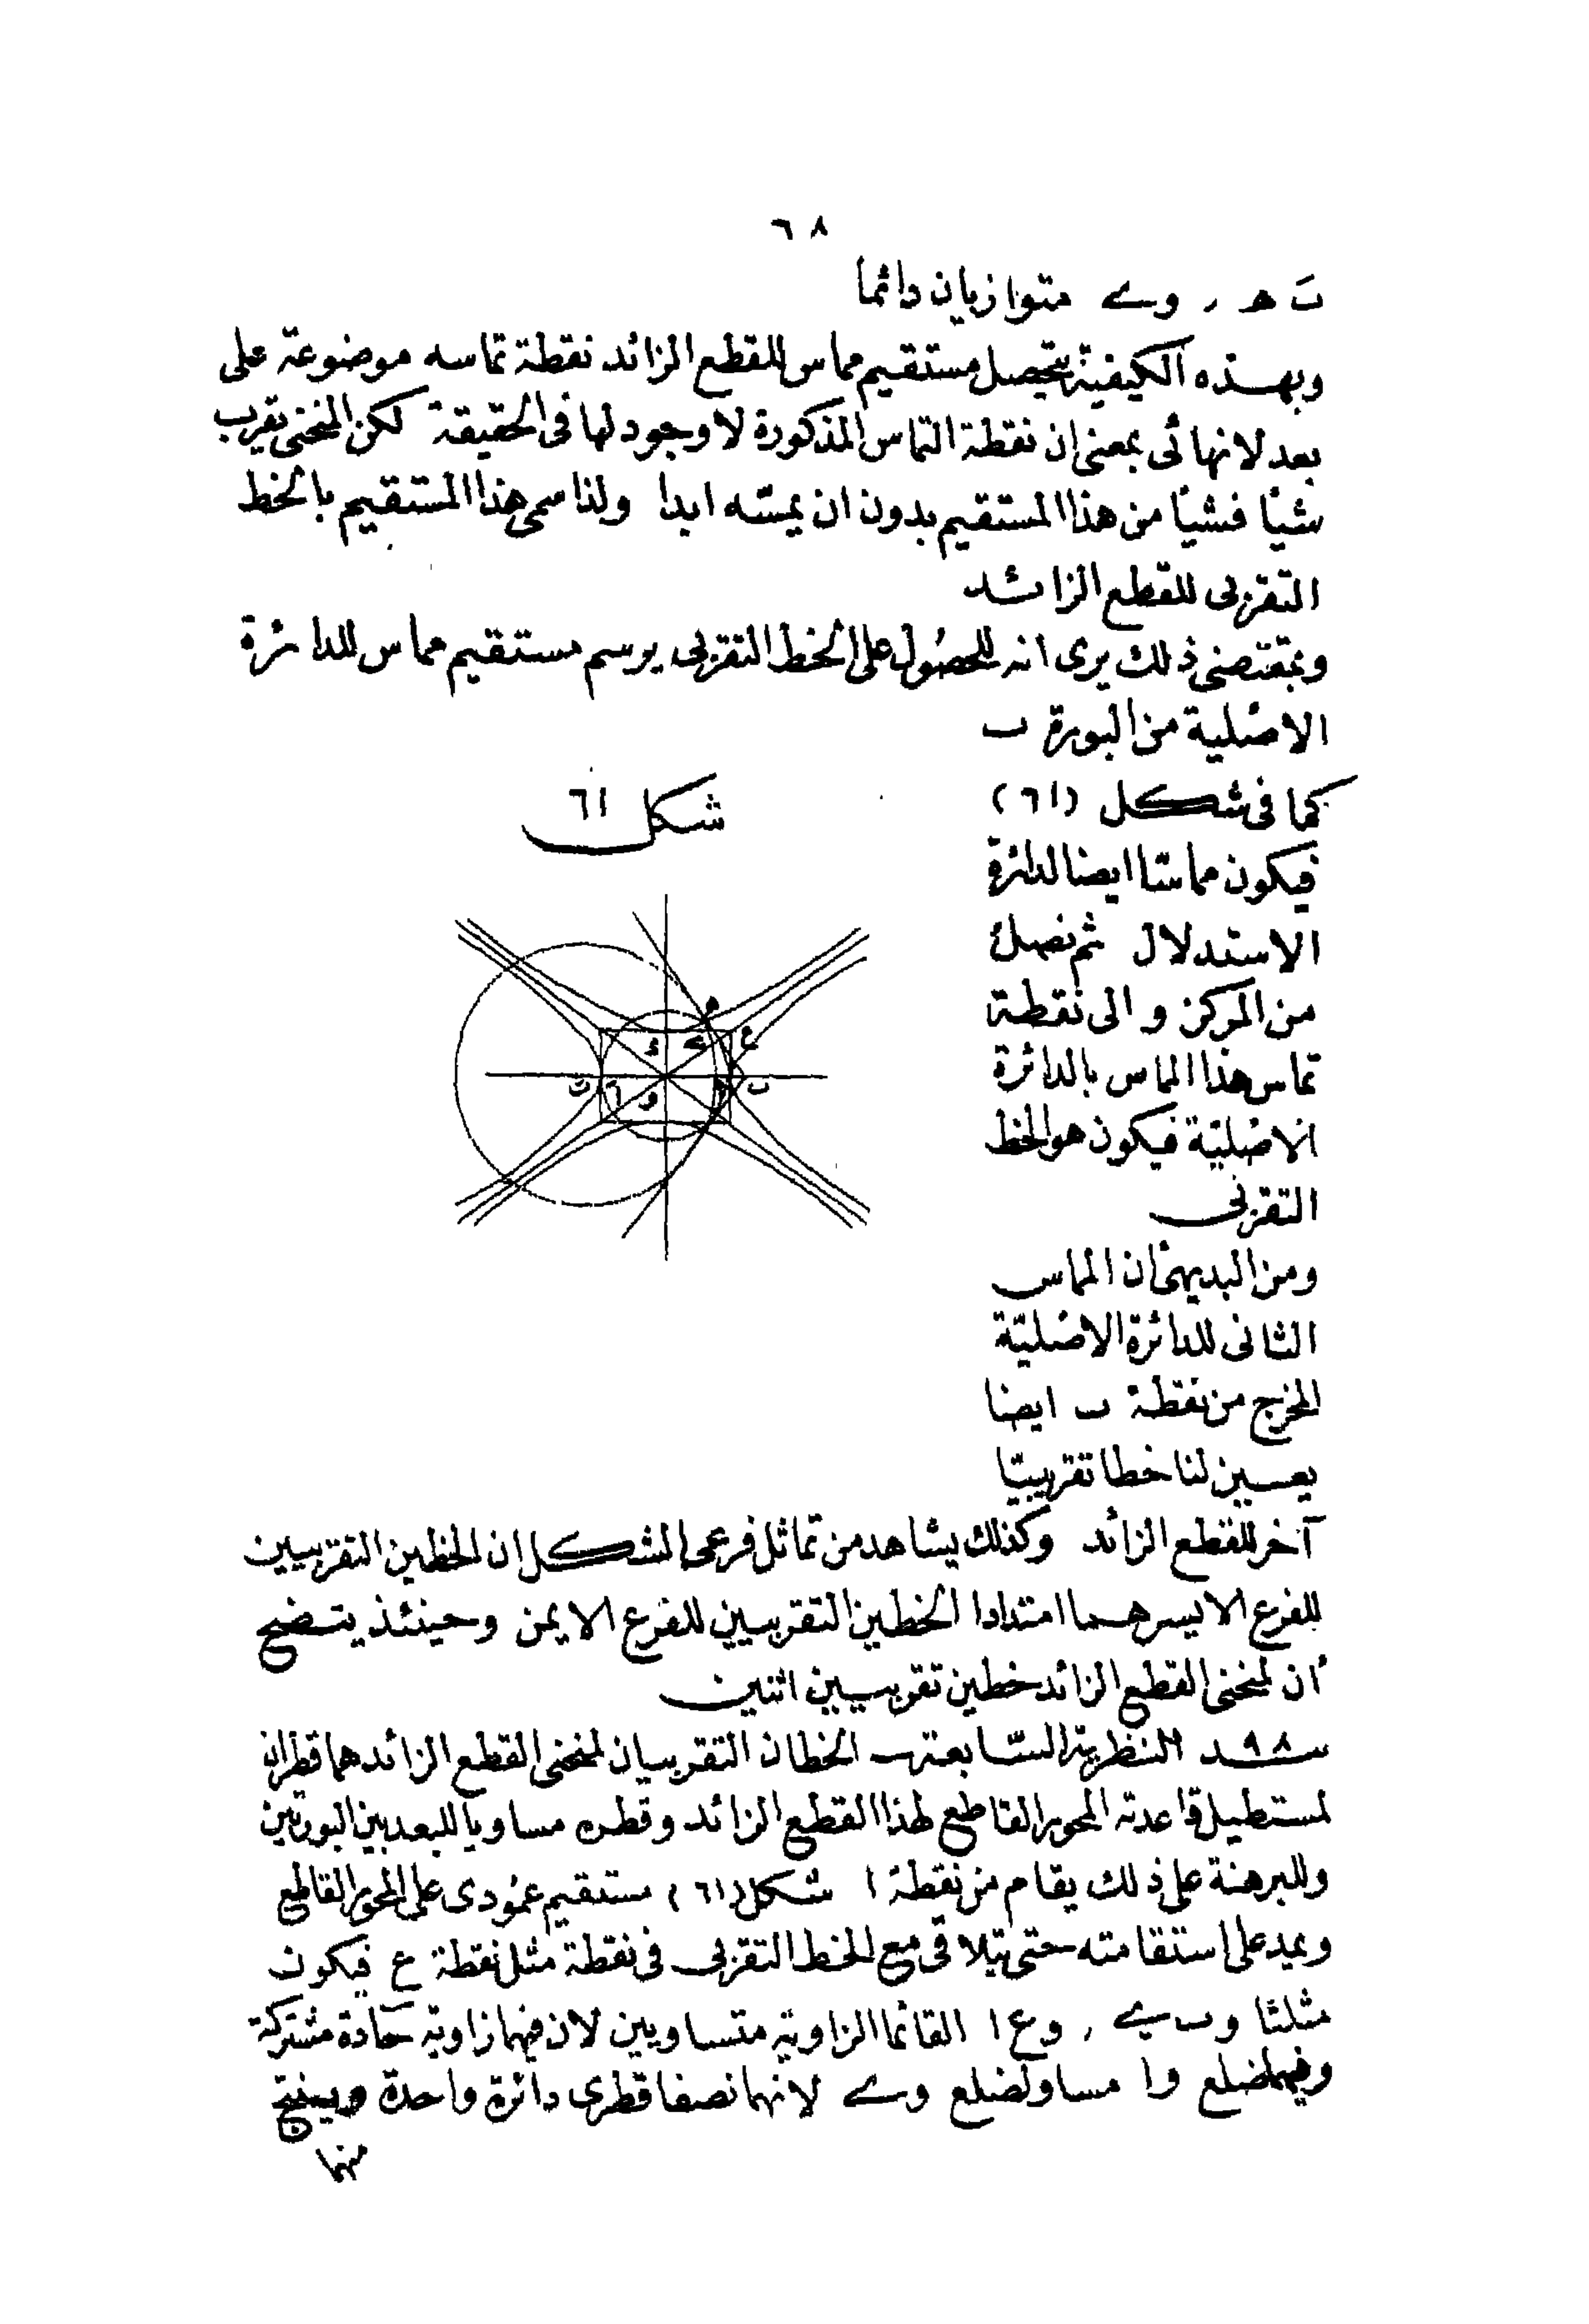 ٦٨
بَ ھ ، وے متوازيان دائما
وبهذه الكيفية يتحصل مستقيم مماس للقطع الزائد نقطة تماسه موضوعة على
بعد لانهائى بمعنى ان نقطة التماس المذكورة لاوجود لها فى الحقيقة لكن المنحنى يقرب
شيأ فشيأ من هذا المستقيم بدون ان يمسّه ابدا ولذا سمى هذا المستقيم بالخط
التقربى للقطع الزائد
وبمقتضى ذلك يرى انه للحصول على الخط التقربى يرسم مستقيم مماس للدائرة
الاصلية من البورة ب
كما فى شكل (٦١)
شكل ٦١
فيكون مماسّا ايضا لدائرة
الاستدلال ثم نصل
من المركز و الى نقطة
تماس هذا المماس بالدائرة
الاصليّة فيكون هو الخط
التقربى
ھ
ع
ے
ب
و
ومن البديهى ان المماس
الثانى للدائرة الاصليّة
المخرج من نقطة ب ايضا
يعين لنا خطا تقريبيّا
آخر للقطع الزائد وكذلك يشاهد من تماثل فرعى الشكل ان الخطين التقربيين
للفرع الايسر هما امتدادا الخطين التقربيين للفرع الايمن وحينئذ يتضح
أن لمنحنى القطع الزائد خطين تقربيين اثنين
٩٨ النظرية السّابعة الخطان التقربيان لمنحنى القطع الزائد هما قطران
لمستطيل قاعدته المحور القاطع لهذا القطع الزائد وقطره مساويا للبعد بين البورتين
وللبرهنة على ذلك يقام من نقطة ا شكل (٦١) مستقيم عمودى على المحور القاطع
ويمد على استقامته حتى يتلاقى مع الخط التقربى فى نقطة مثل نقطة ع فيكون
مثلثا وب ے ، وع ا القائما الزاوية متساويين لان فيهما زاوية حادة مشتركة
وفيهما ضلع وا مساو لضلع وے لانهما نصفا قطرى دائرة واحدة وينتج
منهما